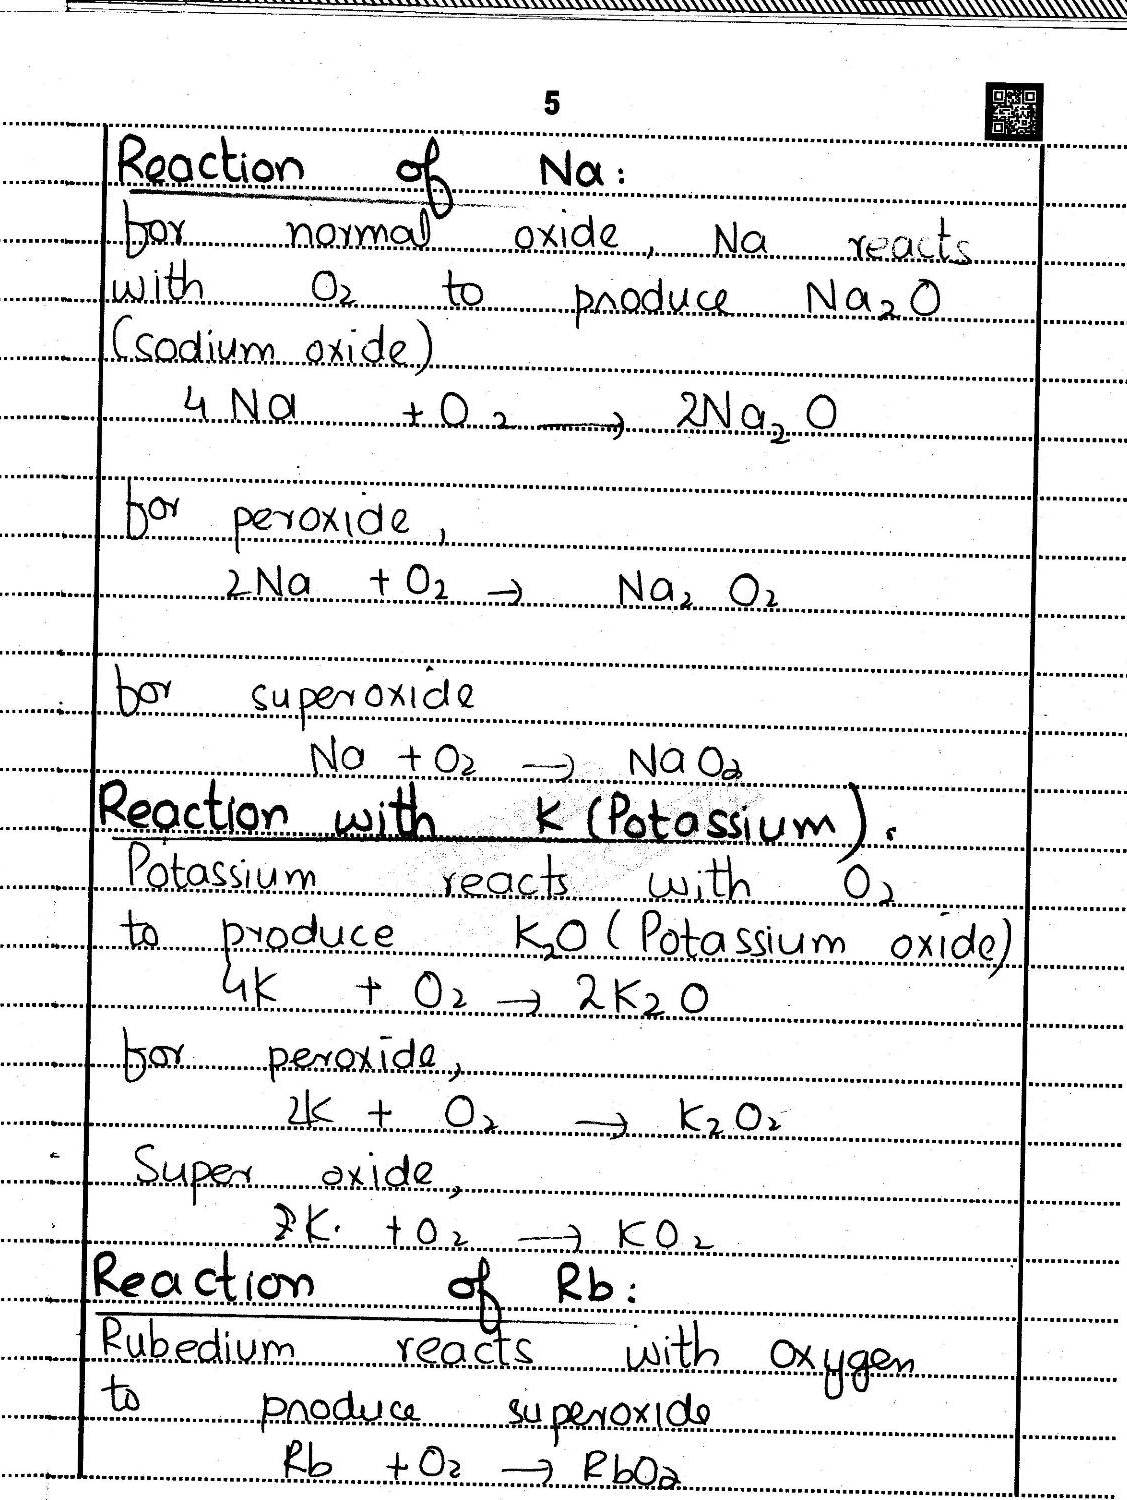 5
Reaction of Na:
for normal oxide, Na reacts
with O₂ to produce Na₂O
(sodium oxide)
4 Na + O₂ ⟶ 2Na₂O
for peroxide,
2Na + O₂ → Na₂ O₂
for superoxide
Na + O₂ → NaO₂
Reaction with K (Potassium).
Potassium reacts with O₂
to produce K₂O (Potassium oxide)
4K + O₂ → 2K₂O
for peroxide,
2K + O₂ → K₂O₂
Super oxide,
K + O₂ → KO₂
Reaction of Rb:
Rubedium reacts with oxygen
to produce superoxide
Rb + O₂ → RbO₂